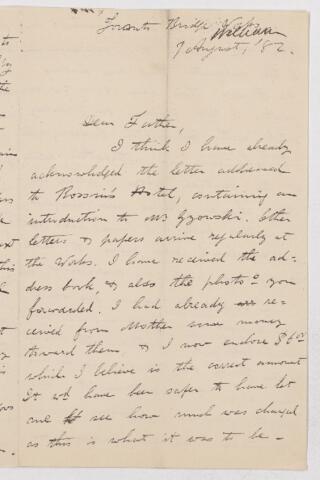 Toronto Bridge Works
William
9 August, '82.
Dear Father,
I think I have already
acknowledged the letter addressed
to Rossin's Hotel, containing an
introduction to Mr Gzowski. Other
letters & papers arrive regularly at
the Works. I have received the ad-
dress book, & also the photo you
forwarded. I had already re-
ceived from Mother some money
toward them, & I now enclose $6
which I believe is the correct amount
It wd have been safer to have let
me see how much was charged
as this is what it was to be -